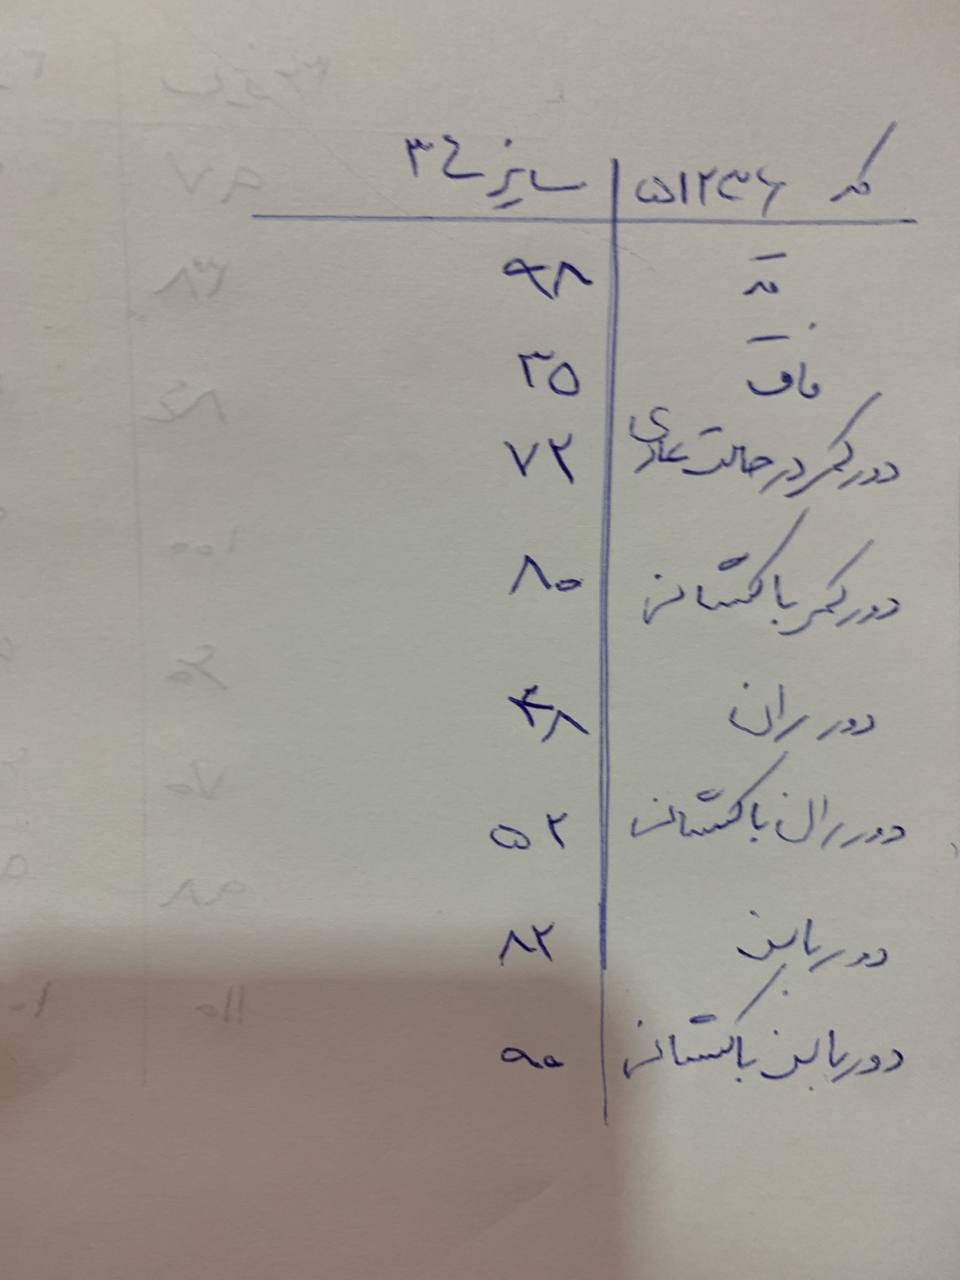 کد ۵۱۲۳۶ سایز ۳۴
قد ۹۸
فاق ۳۵
دور کمر در حالت عادی ۷۲
دور کمر با کشسانی ۸۰
دور ران ۴۸
دور ران با کشسانی ۵۲
دور باسن ۸۲
دور باسن با کشسانی ۹۰